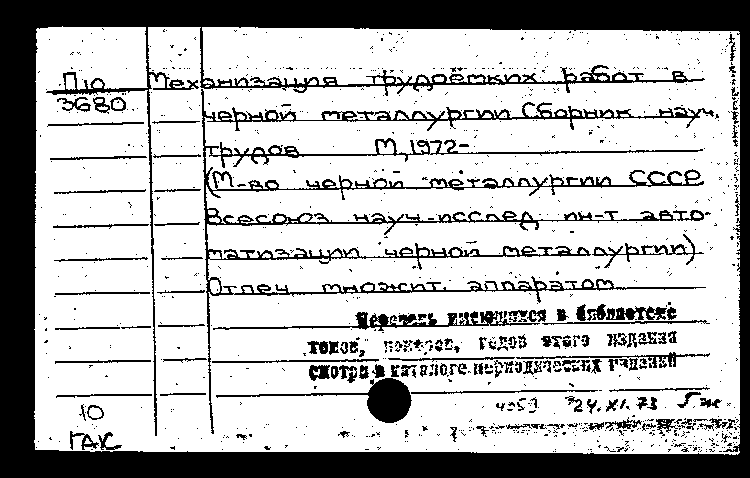 П10 Механизация трудоёмких работ в
3680 черной металлургии Сборник науч.
трудов М, 1972-
(М-во черной металлургии СССР
Всесоюз науч-исслед ин-т авто-
матизации черной металлургии)
Отпеч множит. аппаратом
Перечень имеющихся в библиотеке
томов, номеров, годов этого издания
смотри в каталоге периодических изданий
24.XI.73
10
ГАК